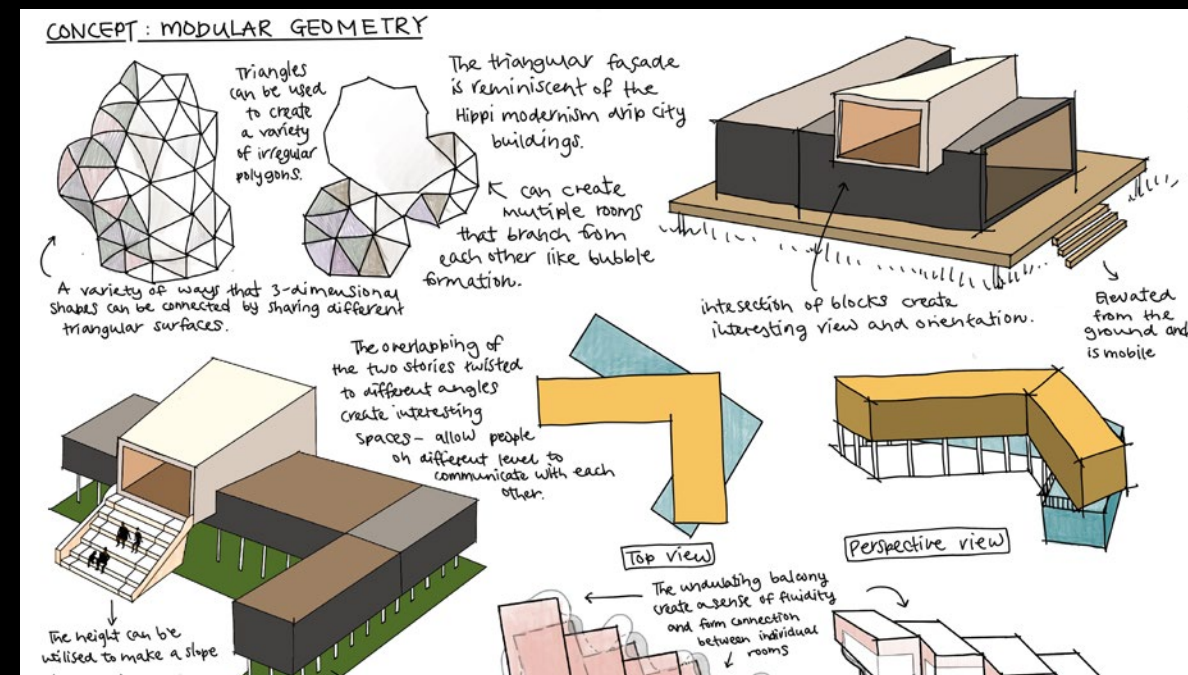 CONCEPT : MODULAR GEOMETRY
Triangles
can be used
to create
a variety
of irregular
polygons.
The triangular façade
is reminiscent of the
Hippi modernism drip city
buildings.
can create
multiple rooms
that branch from
each other like bubble
formation.
A variety of ways that 3-dimensional
shapes can be connected by sharing different
triangular surfaces.
intesection of blocks create
interesting view and orientation.
Elevated
from the
ground and
is mobile
The overlapping of
the two stories twisted
to different angles
create interesting
spaces - allow people
on different level to
communicate with each
other.
Top view
Perspective view
The undulating balcony
create a sense of fluidity
and form connection
between individual
rooms
The height can be
utilised to make a slope